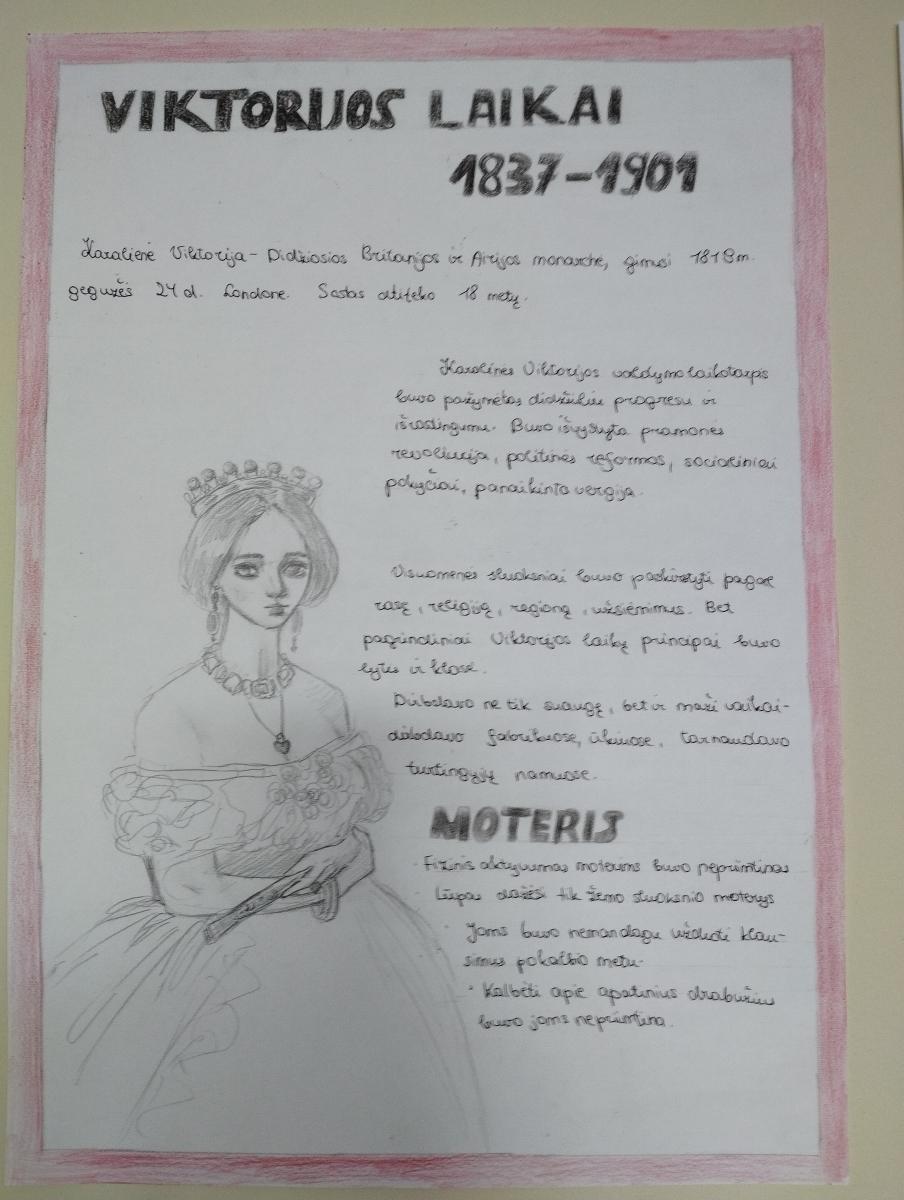 VIKTORIJOS LAIKAI
1837-1901
Karalienė Viktorija - Didžiosios Britanijos ir Airijos monarchė, gimusi 1819m.
gegužės 24 d. Londone. Sostas atiteko 18 metų.
Karalinės Viktorijos valdymo laikotarpis
buvo pažymėtas didžiuliu progresu ir
išradingumu. Buvo išvystyta pramonės
revoliucija, politinės reformos, socialiniai
pokyčiai, panaikinta vergija.
Visuomenės sluoksniai buvo paskirstyti pagal
rasę, religiją, regioną, užsiėmimus. Bet
pagrindiniai Viktorijos laikų principai buvo
lytis ir klasė.
Dirbdavo ne tik suaugę, bet ir maži vaikai-
dirbdavo fabrikuose, ūkiuose, tarnaudavo
turtingųjų namuose.
MOTERIS
· Fizinis aktyvumas moterims buvo nepriimtinas
· Lūpas dažėsi tik žemo sluoksnio moterys
· Joms buvo nemandagu užduoti klau-
simus pokalbio metu.
· Kalbėti apie apatinius drabužius
buvo joms nepriimtina.